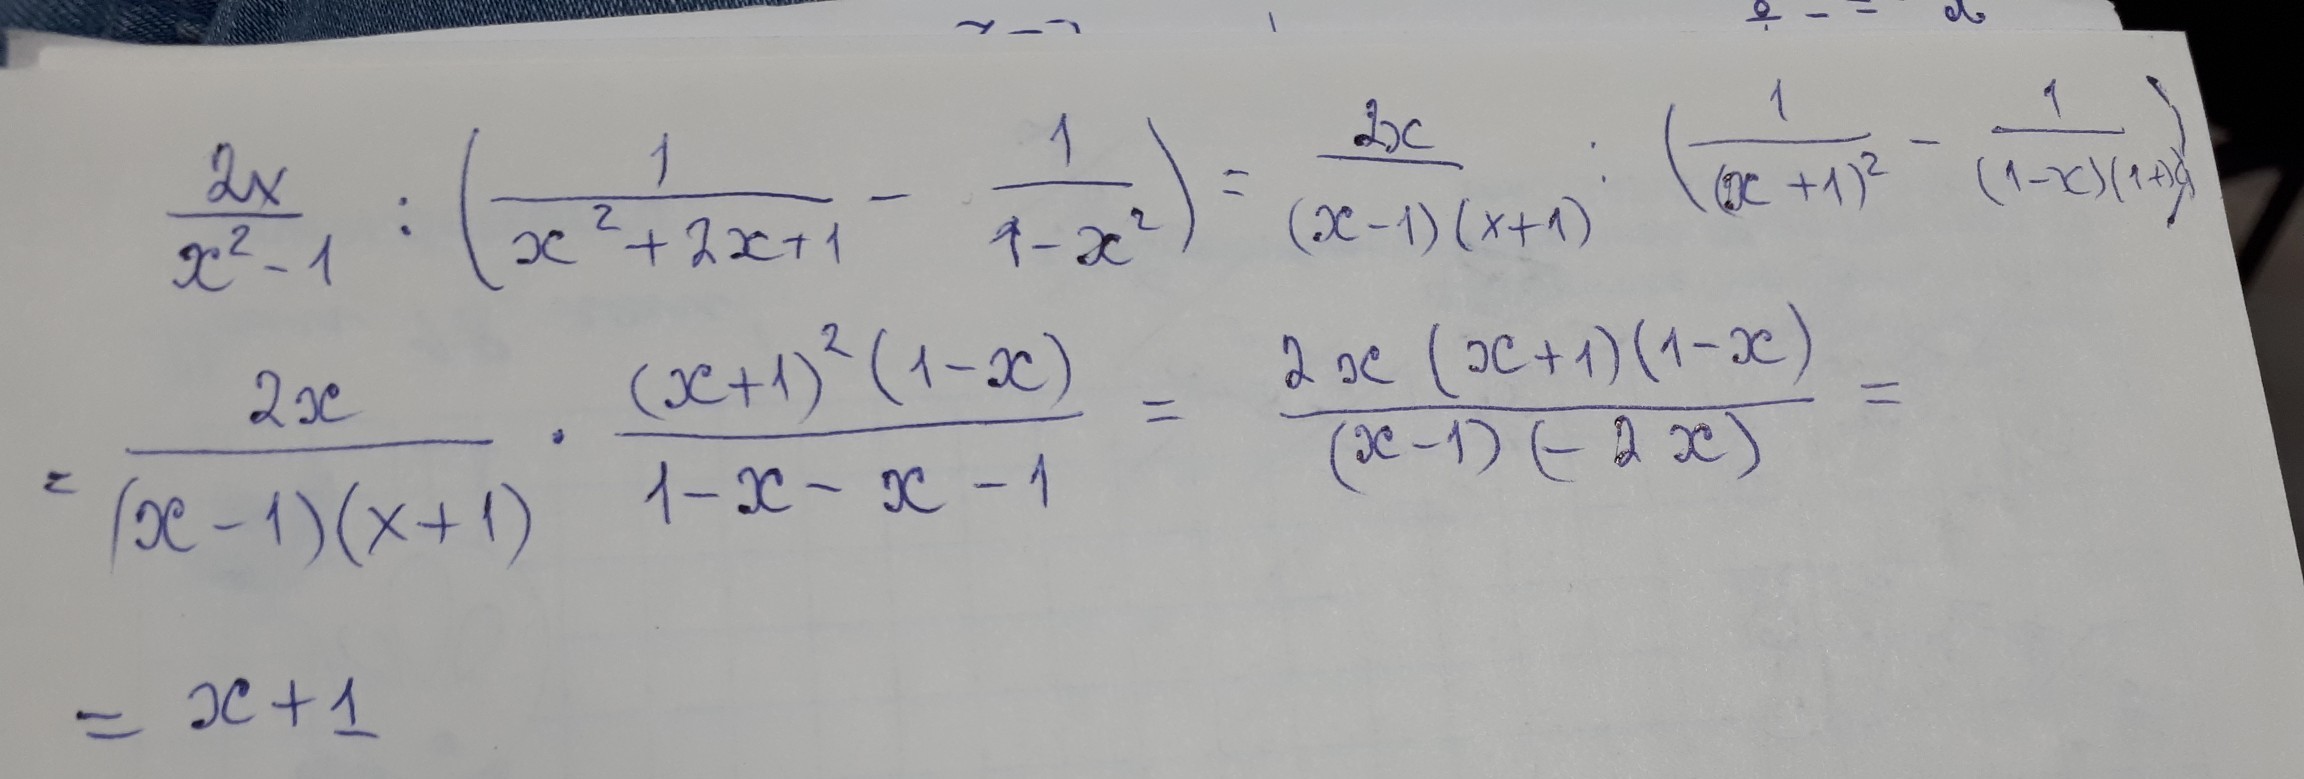 2x/(x²-1) : (1/(x²+2x+1) - 1/(1-x²)) = 2x/((x-1)(x+1)) : (1/(x+1)² - 1/((1-x)(1+x)))
= 2x/((x-1)(x+1)) · (x+1)²(1-x)/(1-x-x-1) = 2x(x+1)(1-x)/((x-1)(-2x)) =
= x+1